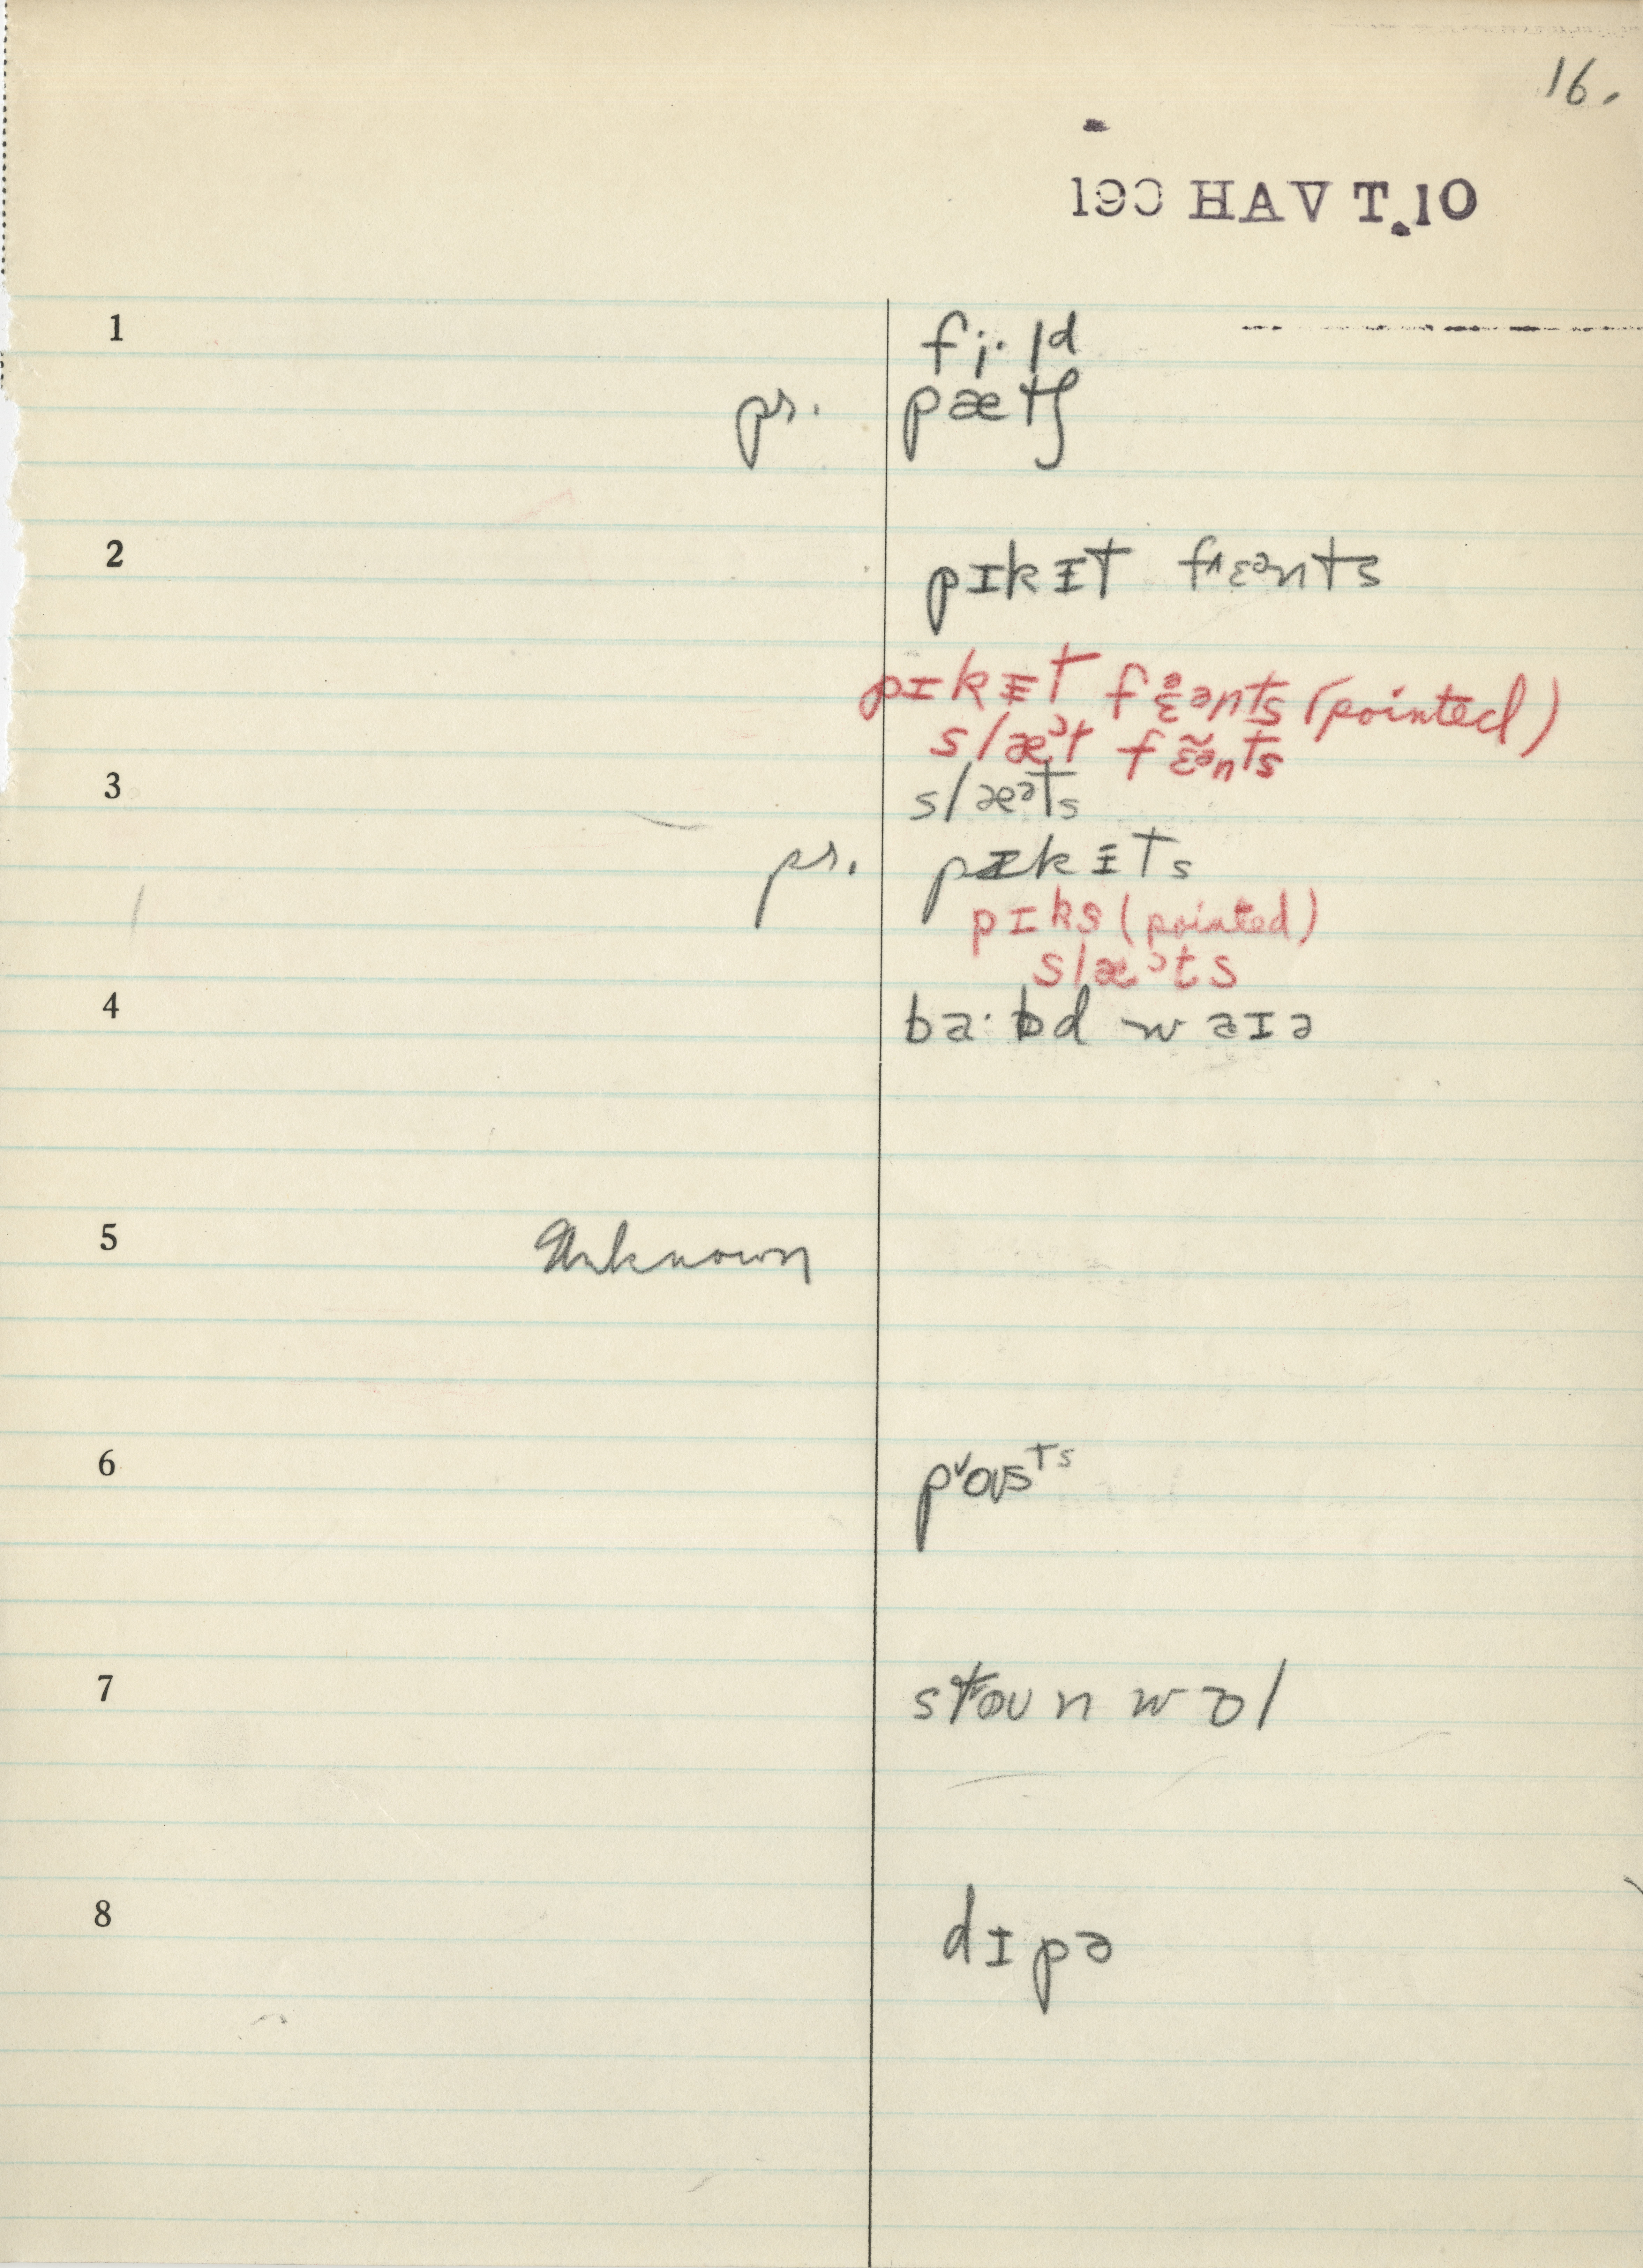 16.
190 HAV T.10
1 fi·ld
ps. pætʃ
2 pɪkɪt fɛənts
pɪkɪt fɛənts (pointed)
slæᵊt fɛ̃ənts
3 slæᵊts
ps. pɪkɪts
pɪks (pointed)
slæᵊts
4 ba·bd waɪə
5 Unknown
6 pˇoʊsᵗˢ
7 stoʊn wɔl
8 dɪpə